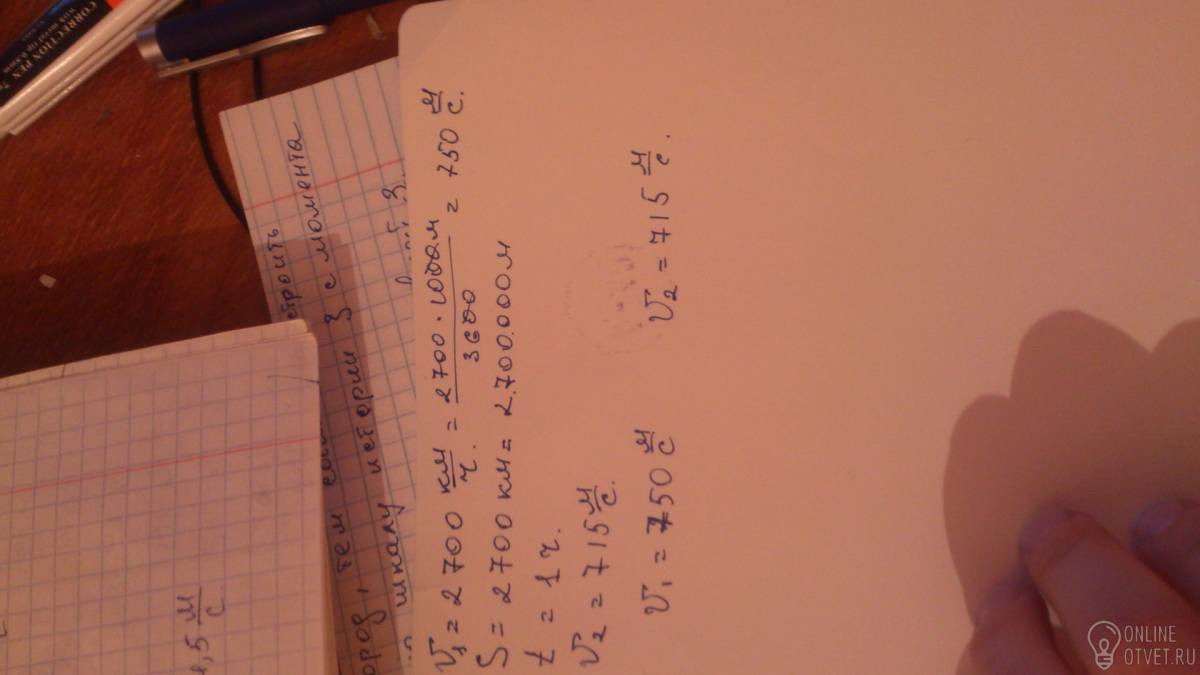 V₁ = 2700 км/ч. = 2700 · 1000м / 3600 = 750 м/с.
S = 2700 км = 2.700.000 м
t = 1 ч.
V₂ = 715 м/с.
V₁ = 750 м/с V₂ = 715 м/с.
строить
ород, тем
шкалу истории З с момента
,5 м/с
CORRECTION PEN
ONLINE
OTVET.RU